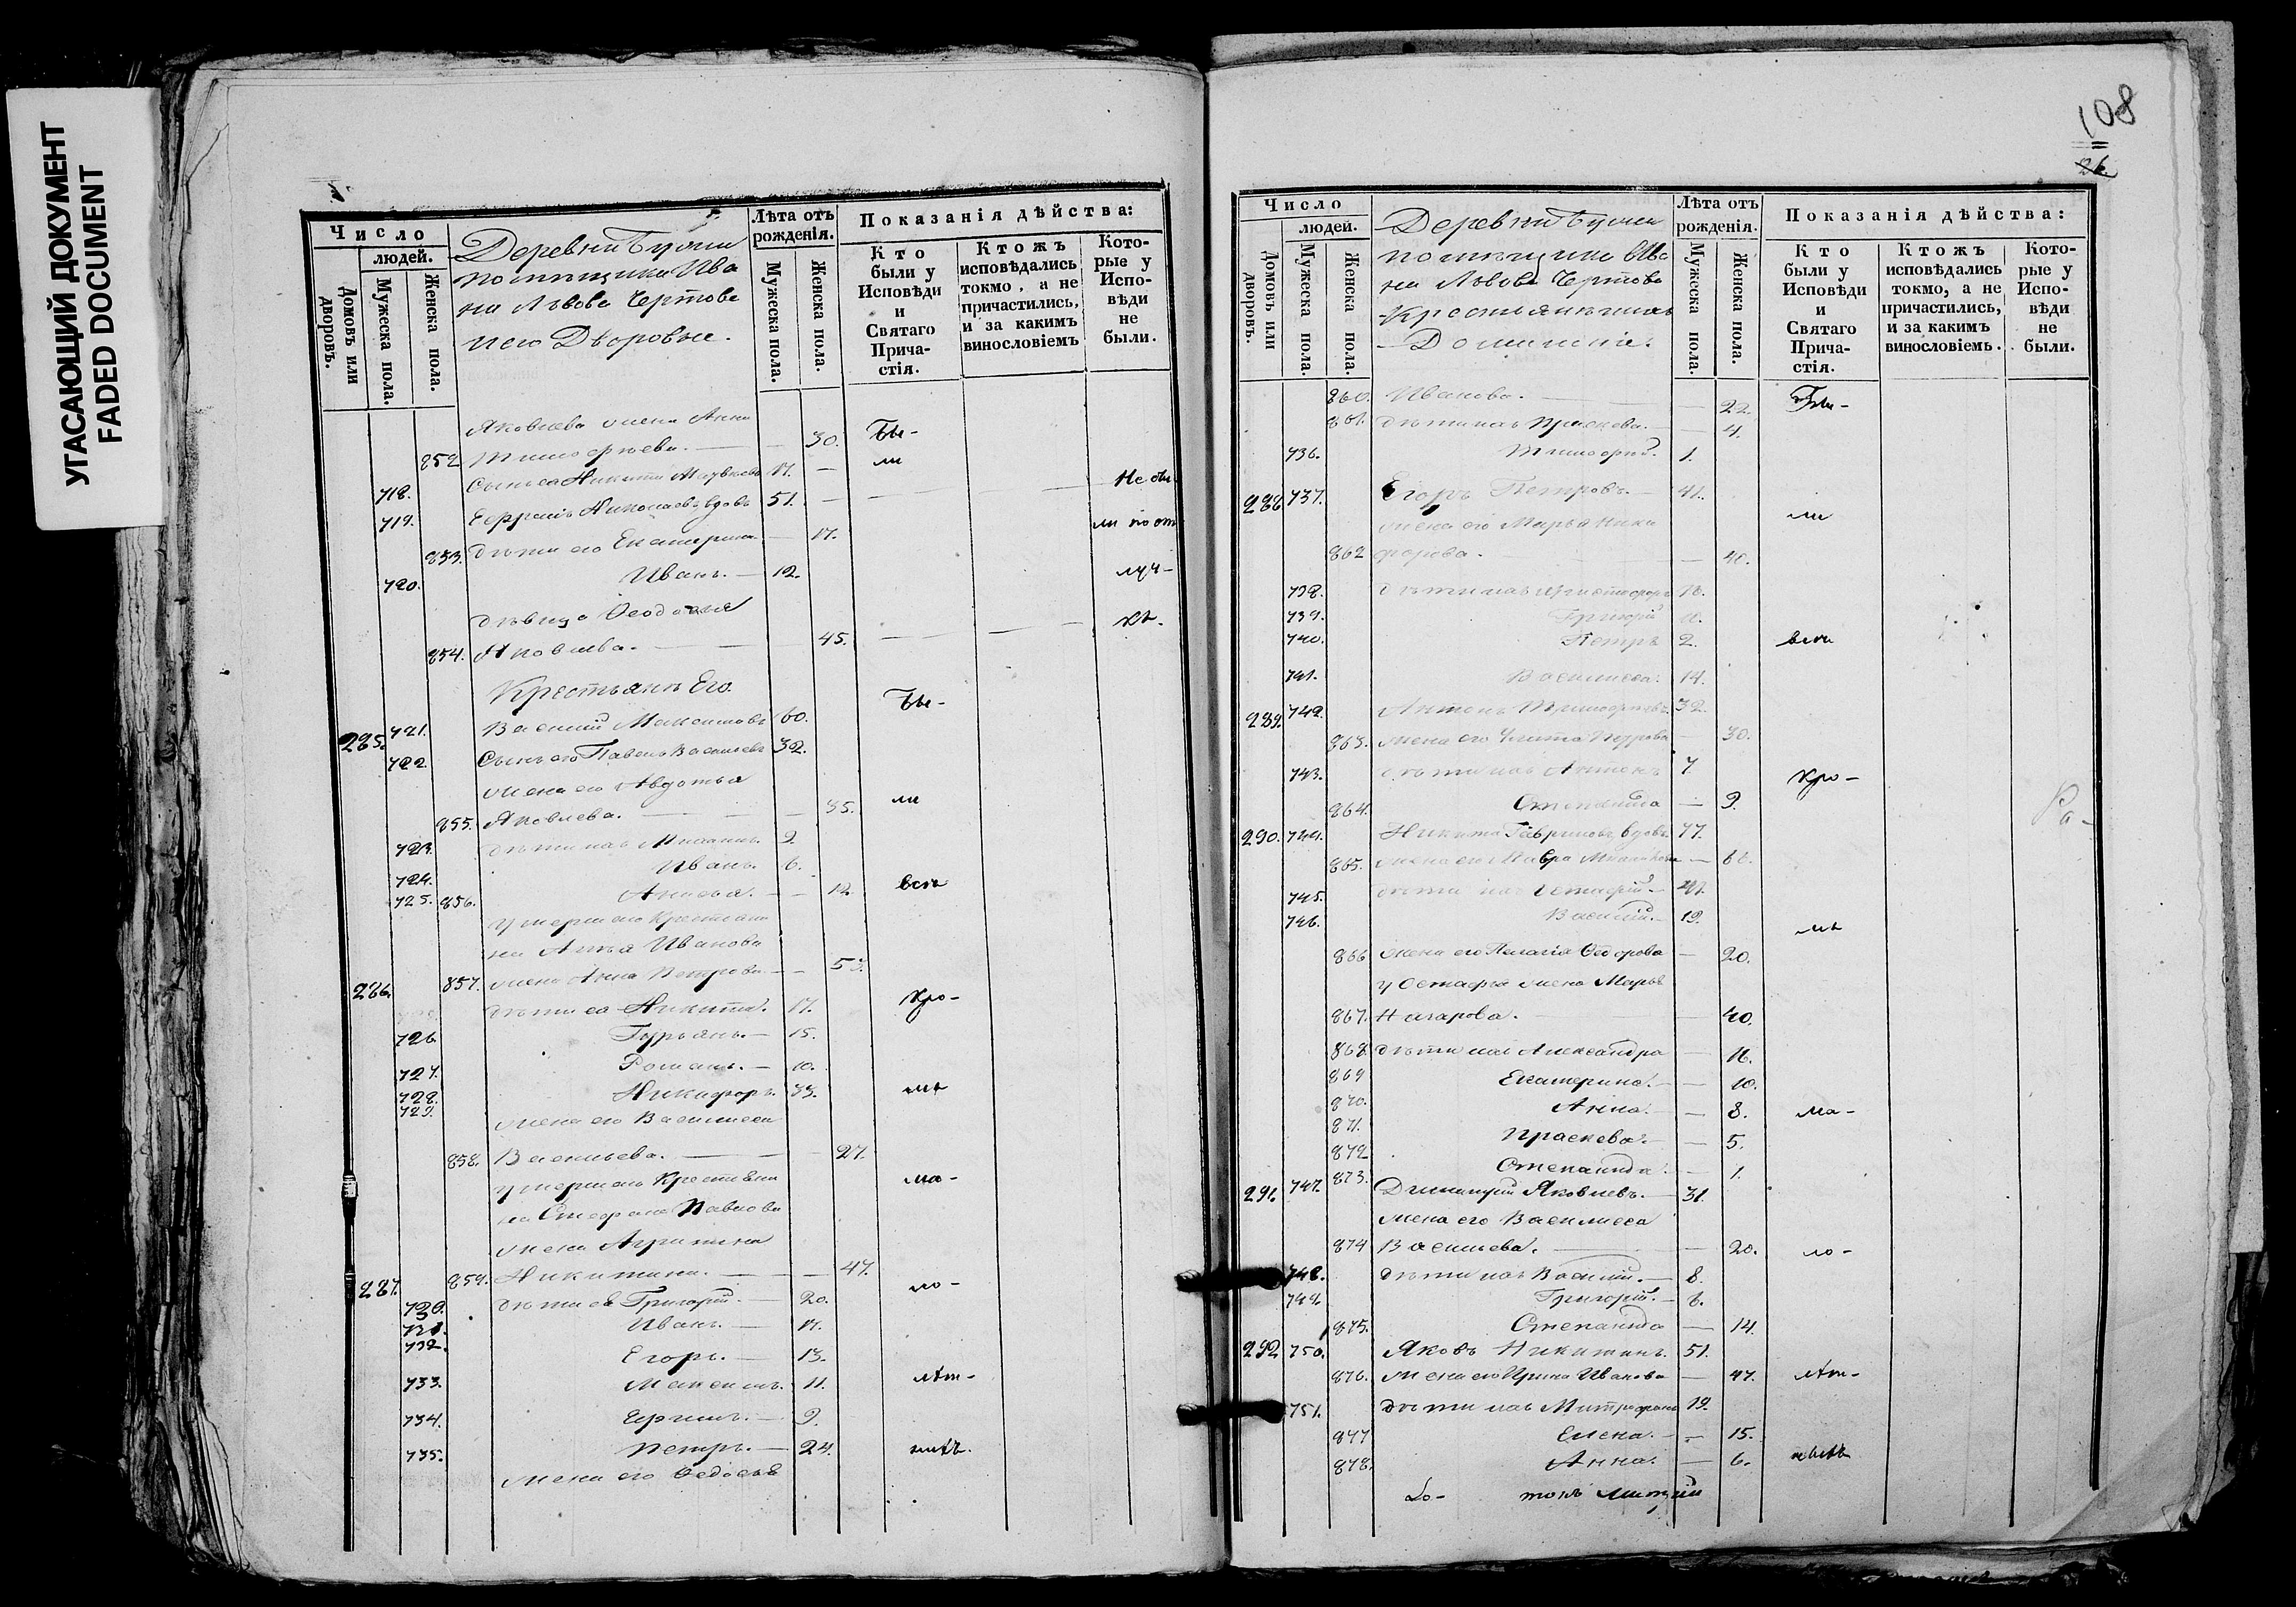 УГАСАЮЩИЙ ДОКУМЕНТ
FADED DOCUMENT
Число
людей.
Домовъ или дворовъ.
Мужеска пола.
Женска пола.
Деревни
помѣщика Ива
на Львова Чертова
его Дворовые.
Лѣта отъ рожденія.
Мужеска пола.
Женска пола.
Показанія дѣйства:
Кто были у Исповѣди и Святаго Причастія.
Ктожъ исповѣдались токмо, а не причастились, и за какимъ винословіемъ
Которые у Исповѣди не были.
Яковлева жена Анна
852 Тимофѣева. — — 30. Бы-
718. Сынъ ея Никита 17. — ли
719. Ефремъ Николаевъ вдовъ 51. — Не бы
853. дѣти его Екатерина — 17. ли по от
720. Иванъ. — 12. луч-
дѣвица Ѳеодосия
854. Яковлева. — 45. кѣ.
Крестьяне Его.
285. 721. Василій Максимовъ 60. Бы-
722. Сынъ его Павелъ Васильевъ 32.
жена его Авдотья
855. Яковлева. — — 35. ли
723. дѣти ихъ 9.
724. Иванъ. 6.
725. 856. Анисья. — 12. всѣ
умершаго Крестьяни
на Ивана Иванова
286. 857. жена Анна Петрова — 53.
дѣти ея Никита. 17. кро-
726. Гурьянъ. — 15.
727. Романъ. — 10.
728. Никифоръ. 33. мѣ
729. жена его Василиса
858. Васильева. — — 27.
умершаго Крестьяни ма-
на Стефана Павлова
жена Агрипина
287. 859. Никитина. — — 47.
730. дѣти ея Григорій. — 20. ло-
731. Иванъ. — 17.
732. Егоръ. — 13.
733. Максимъ. 11. лѣт-
734. Ефимъ. — 9.
735. Петръ. — 24. нихъ.
жена его Ѳедосья
108
26
Число
людей.
Домовъ или дворовъ.
Мужеска пола.
Женска пола.
Деревни
помѣщика Ива
на Львова Чертова
Крестьянъ ихъ
Домашніе.
Лѣта отъ рожденія.
Мужеска пола.
Женска пола.
Показанія дѣйства:
Кто были у Исповѣди и Святаго Причастія.
Ктожъ исповѣдались токмо, а не причастились, и за какимъ винословіемъ.
Которые у Исповѣди не были.
860. Иванова. — — 22. Бы-
861. дѣти ихъ Праскева. — 4.
736. Тимофей. 1.
288. 737. Егоръ Петровъ. — 41.
жена его Марья Ники ли
862 форова. — — 40.
738. дѣти ихъ Христофоръ 16.
739. Григорій 11.
740. Петръ 2. всѣ
741. Василиса. 14.
289. 742. Антонъ Тимофѣевъ. 32.
863. жена его Улита — 30.
743. дѣти ихъ Антонъ 7. кро-
864. Степанида — 9.
290. 744. Никита Гавриловъ вдовъ 77.
865. жена его Мавра — 66.
745. дѣти ихъ Остафій. — 41.
746. Василій. — 19. мѣ
866 жена его Пелагія Ѳедорова — 20.
у Остафья жена Марья
867. Назарова. — — 40.
868. дѣти ихъ Александра — 16.
869 Екатерина. — 10.
870. Анна. — 8. ма-
871. Праскева. — 5.
872 Степанида. — 1.
873.
291. 747. Димитрій Яковлевъ. — 31.
жена его Василиса
874 Васильева. — — 20. ло-
748. дѣти ихъ Василій. — 8.
749. Григорій. — 6.
875. Степанида — 14.
292 750. Яковъ Никитинъ. 51.
876. жена его Ирина Иванова — 47. лѣт-
751. дѣти ихъ Митрофанъ 19.
877 Елена. — 15.
878. Анна. — 6.